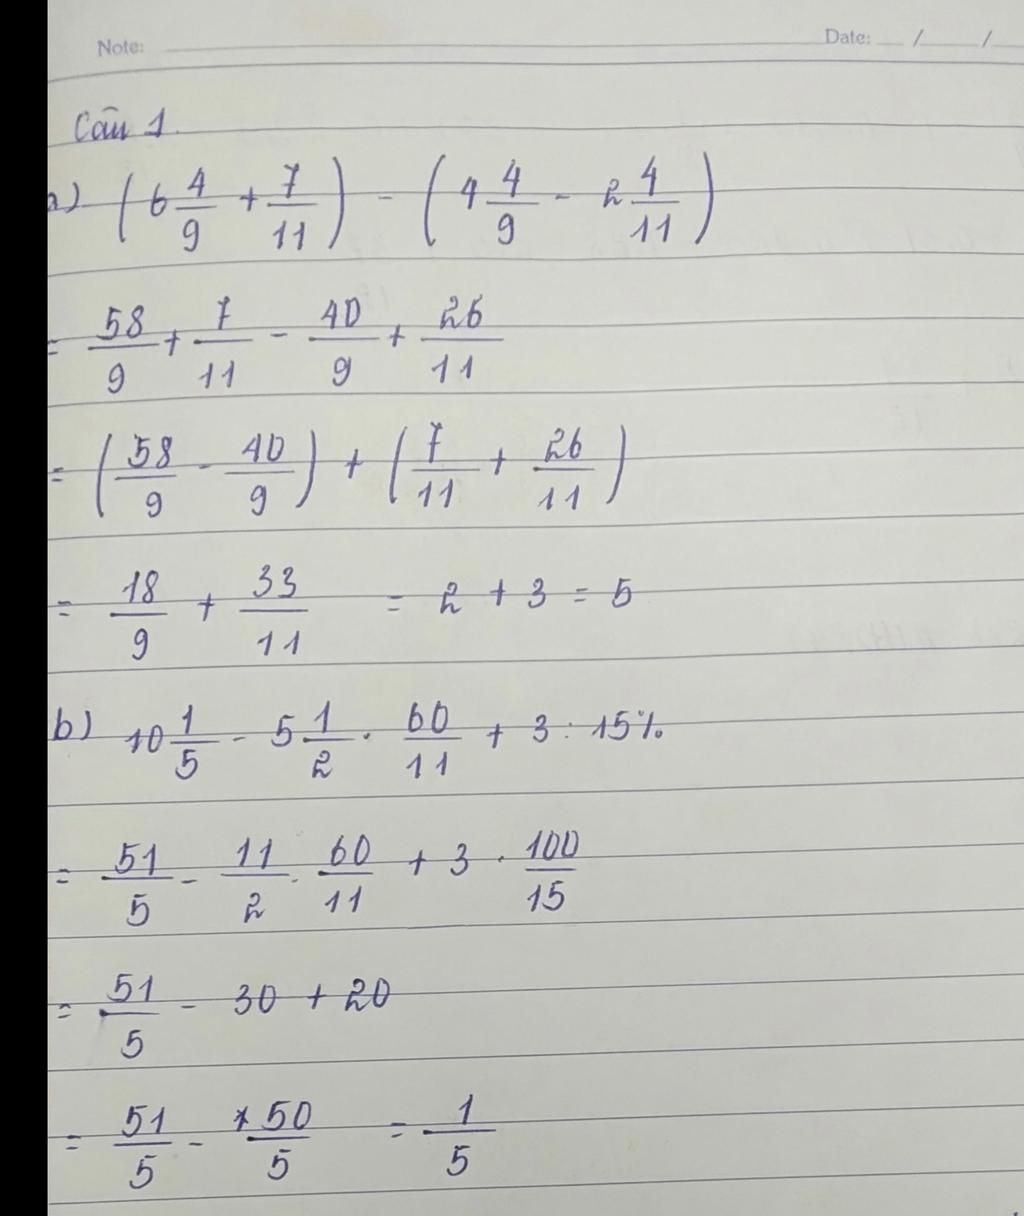 Note: Date: / /
Câu 1.
a) (6 4/9 + 7/11) - (4 4/9 - 2 4/11)
= 58/9 + 7/11 - 40/9 + 26/11
= (58/9 - 40/9) + (7/11 + 26/11)
= 18/9 + 33/11 = 2 + 3 = 5
b) 10 1/5 - 5 1/2 . 60/11 + 3 : 15%.
= 51/5 - 11/2 . 60/11 + 3 . 100/15
= 51/5 - 30 + 20
= 51/5 - 50/5 = 1/5